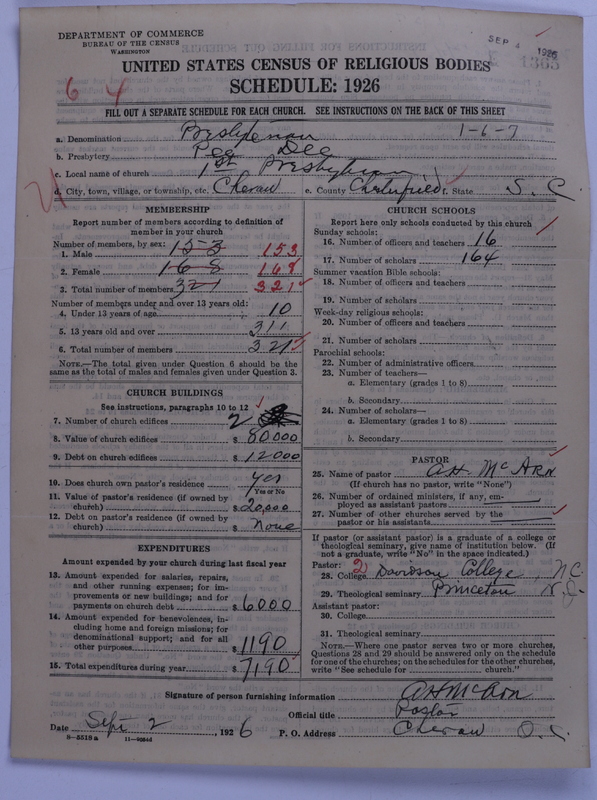 DEPARTMENT OF COMMERCE
BUREAU OF THE CENSUS
WASHINGTON
SEP 4 1926
1365
UNITED STATES CENSUS OF RELIGIOUS BODIES
SCHEDULE: 1926
6 4
FILL OUT A SEPARATE SCHEDULE FOR EACH CHURCH. SEE INSTRUCTIONS ON THE BACK OF THIS SHEET
a. Denomination Presbyterian 1-6-7
b. Presbytery Pee Dee
c. Local name of church 1st Presbyterian
d. City, town, village, or township, etc. Cheraw e. County Chesterfield f. State S. C.
MEMBERSHIP
Report number of members according to definition of member in your church
Number of members, by sex:
1. Male 153 153
2. Female 168 168
3. Total number of members 321 321
Number of members under and over 13 years old:
4. Under 13 years of age 10
5. 13 years old and over 311
6. Total number of members 321
NOTE.—The total given under Question 6 should be the same as the total of males and females given under Question 3.
CHURCH BUILDINGS
See instructions, paragraphs 10 to 12
7. Number of church edifices 2
8. Value of church edifices $ 80000
9. Debt on church edifices $ 12000
10. Does church own pastor's residence Yes
Yes or No
11. Value of pastor's residence (if owned by church) $ 20,000
12. Debt on pastor's residence (if owned by church) $ None
EXPENDITURES
Amount expended by your church during last fiscal year
13. Amount expended for salaries, repairs, and other running expenses; for improvements or new buildings; and for payments on church debt $ 6000
14. Amount expended for benevolences, including home and foreign missions; for denominational support; and for all other purposes $ 1190
15. Total expenditures during year $ 7190
CHURCH SCHOOLS
Report here only schools conducted by this church
Sunday schools:
16. Number of officers and teachers 16
17. Number of scholars 164
Summer vacation Bible schools:
18. Number of officers and teachers
19. Number of scholars
Week-day religious schools:
20. Number of officers and teachers
21. Number of scholars
Parochial schools:
22. Number of administrative officers
23. Number of teachers—
a. Elementary (grades 1 to 8)
b. Secondary
24. Number of scholars—
a. Elementary (grades 1 to 8)
b. Secondary
PASTOR
25. Name of pastor A.H. McArn
(If church has no pastor, write "None")
26. Number of ordained ministers, if any, employed as assistant pastors
27. Number of other churches served by the pastor or his assistants
If pastor (or assistant pastor) is a graduate of a college or theological seminary, give name of institution below. (If not a graduate, write "No" in the space indicated.)
Pastor: 2
28. College Davidson College, N.C.
29. Theological seminary Princeton N.J.
Assistant pastor:
30. College
31. Theological seminary
NOTE.—Where one pastor serves two or more churches, Questions 28 and 29 should be answered only on the schedule for one of the churches; on the schedules for the other churches, write "See schedule for church."
Signature of person furnishing information A H McArn
Official title Pastor
Date Sept 2, 1926 P. O. Address Cheraw S. C.
8-5518a 11-9054d